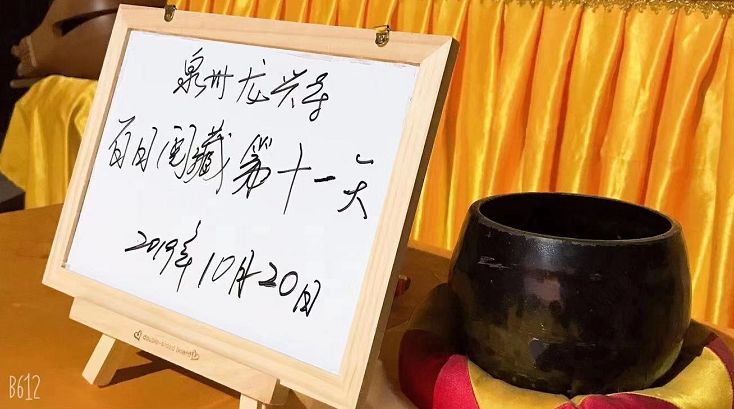 泉州龙兴寺
百日阅藏第十一天
2019年10月20日
double-sided board
B612